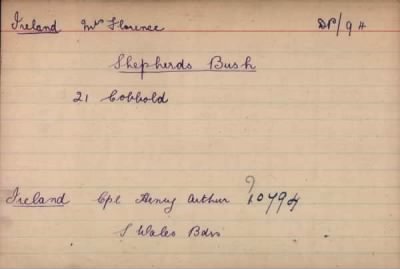 Ireland Mrs Florence DP/94
Shepherds Bush
21 Cobbold
?
Ireland Cpl Henry Arthur 10794
S Wales Bdrs